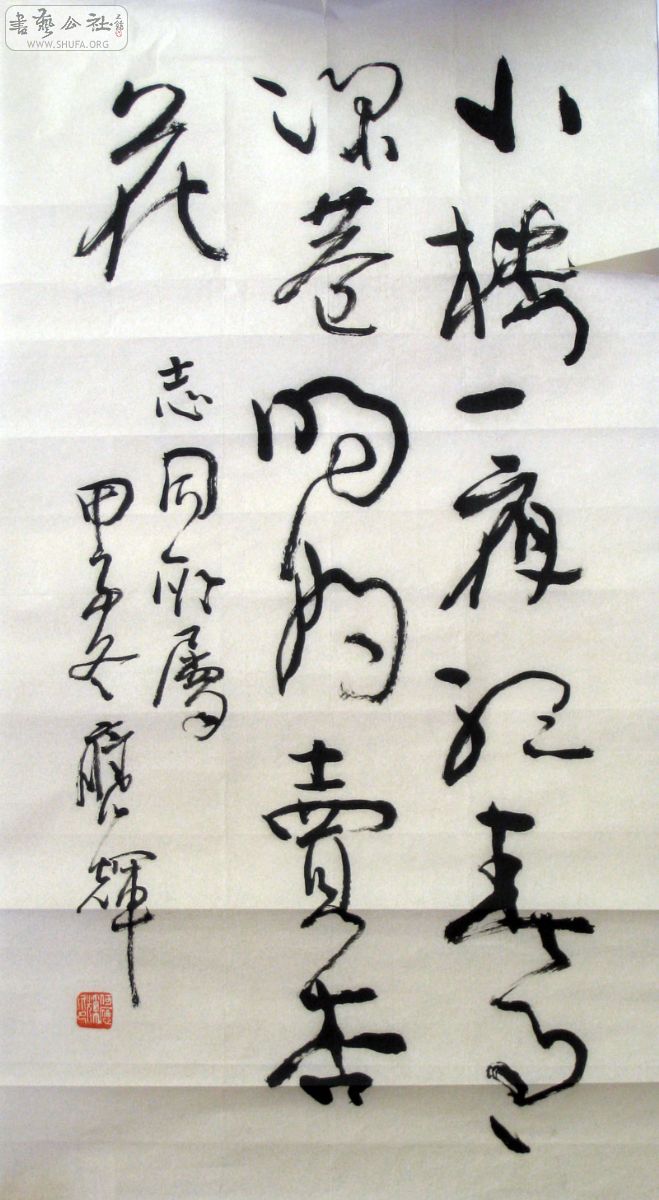 小樓一夜聽春雨
深巷明朝賣杏
花
志同所屬
甲子冬 應輝
書藝公社
WWW.SHUFA.ORG